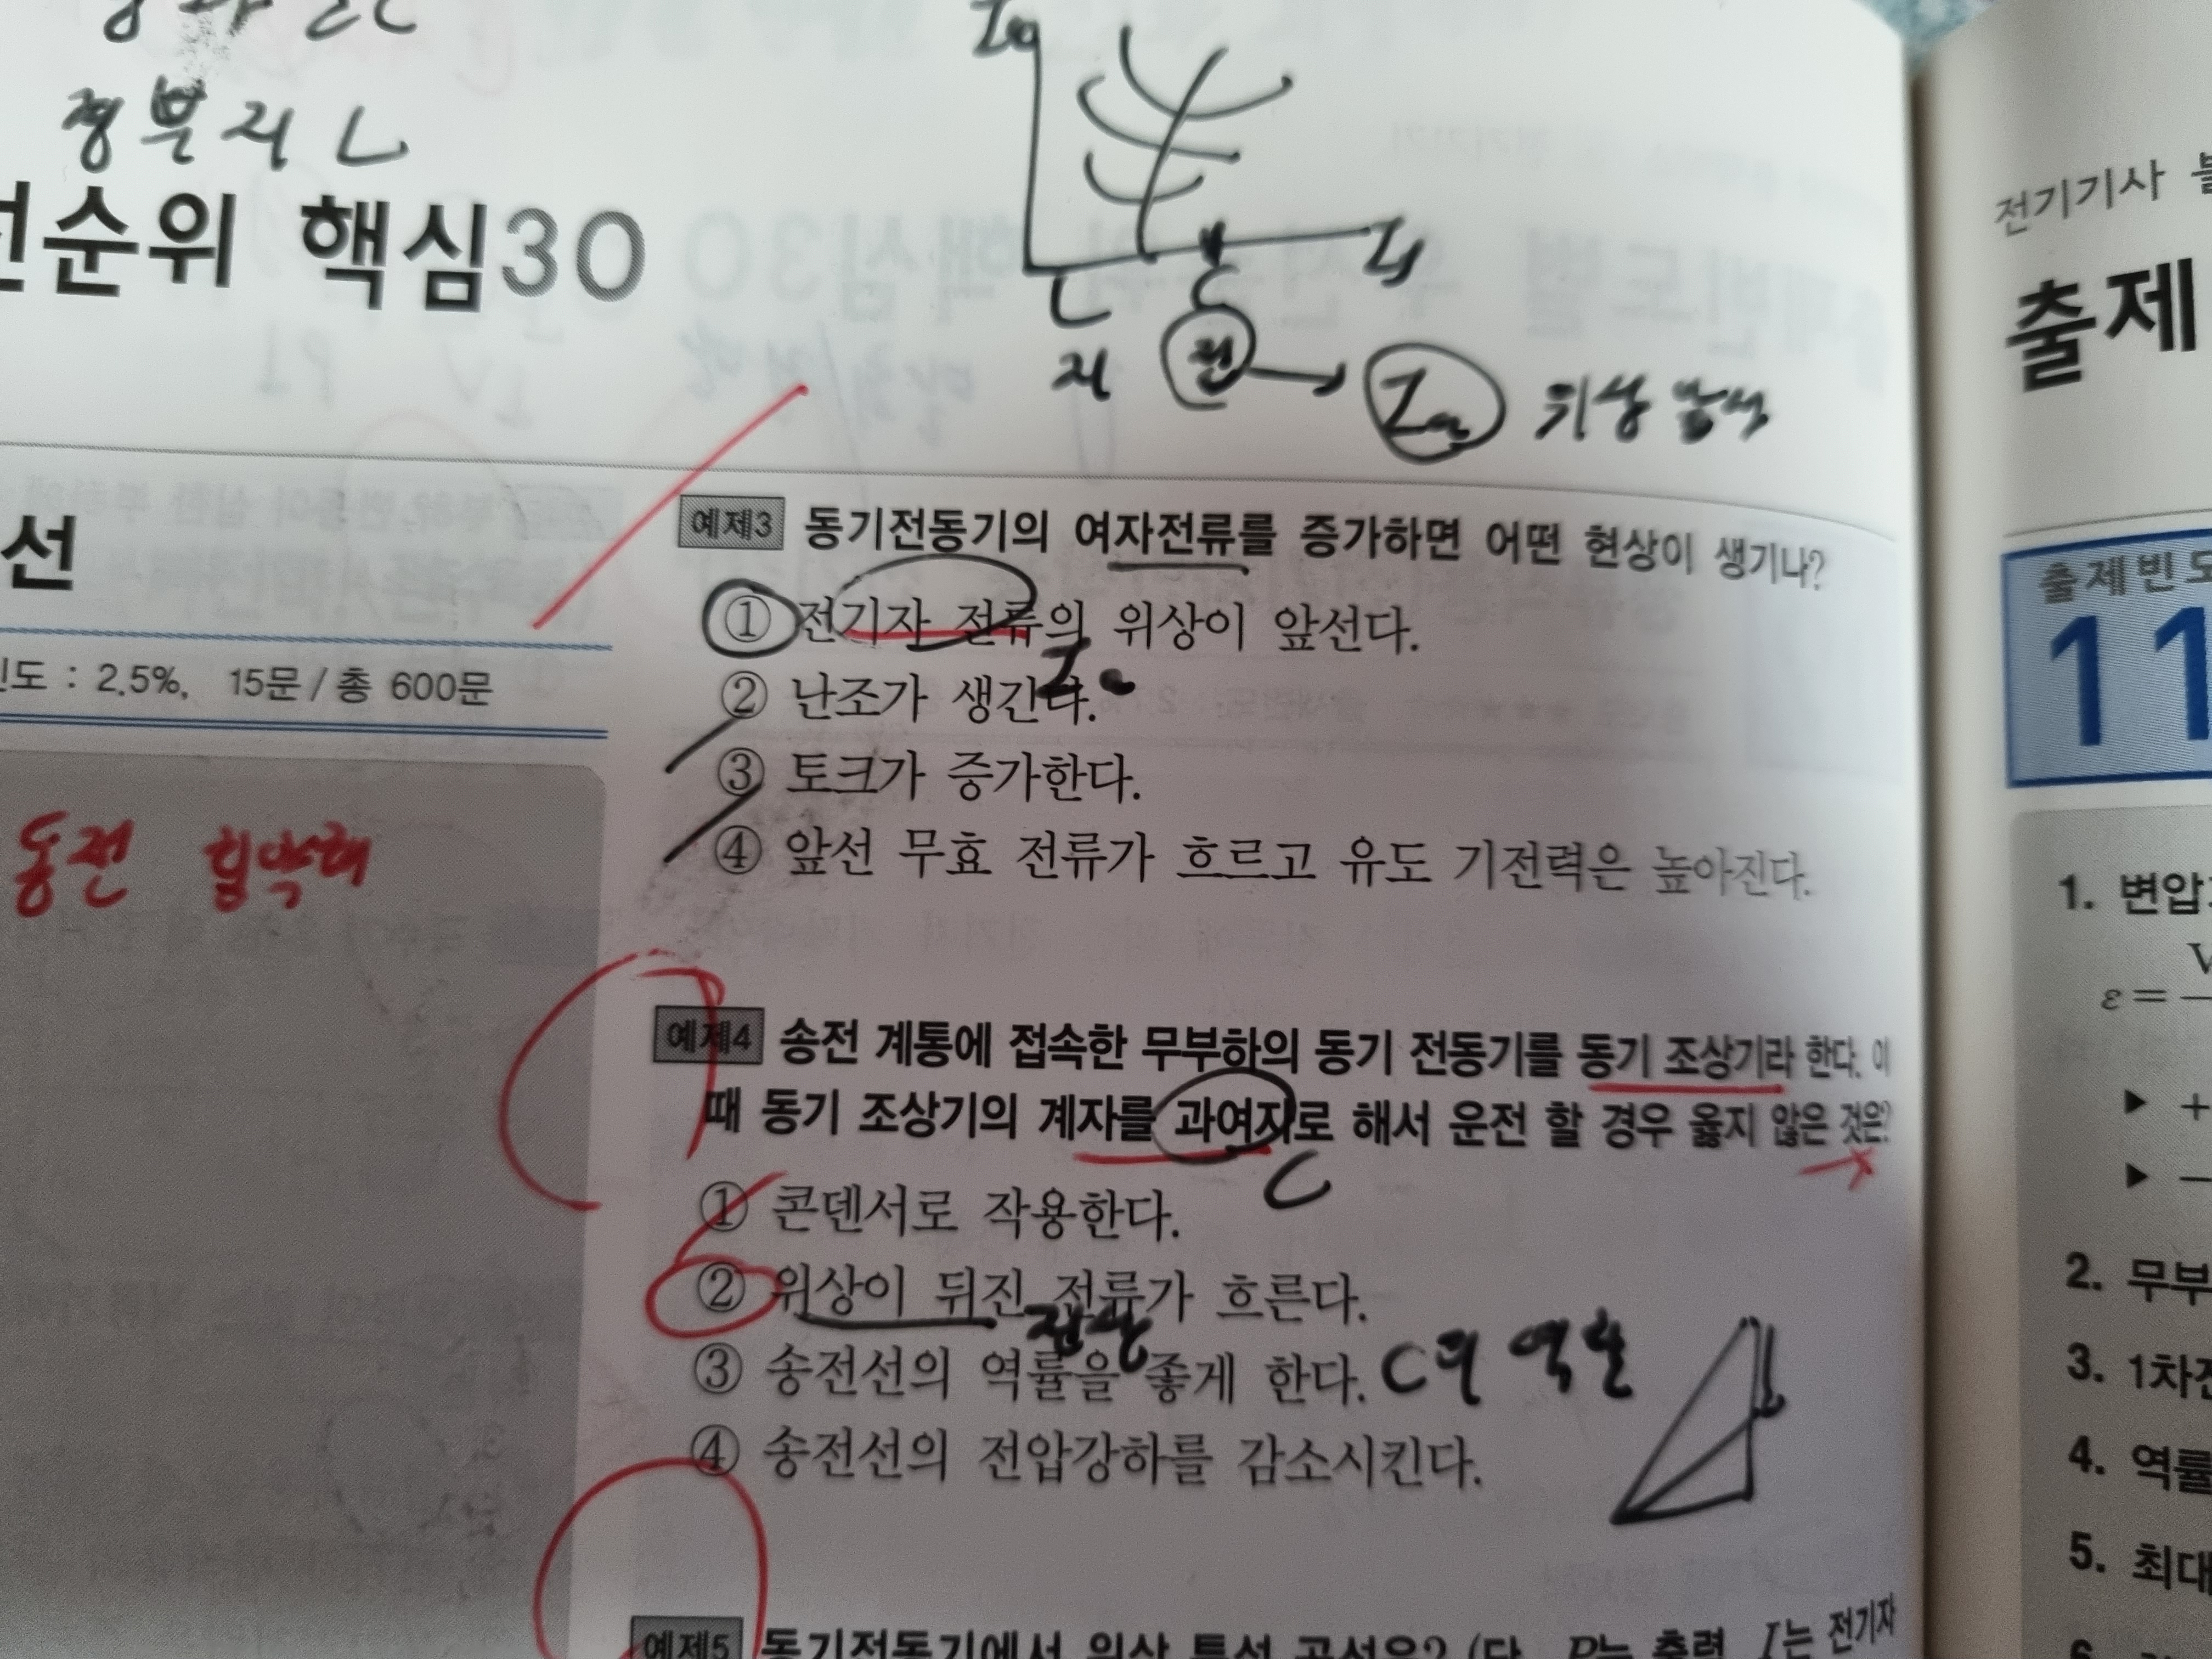 정부지 L
선순위 핵심30
선
빈도 : 2.5%, 15문 / 총 600문
동전
Ia
If
L
C
지
전
Ia
위상 앞선
예제3 동기전동기의 여자전류를 증가하면 어떤 현상이 생기나?
① 전기자 전류의 위상이 앞선다.
② 난조가 생긴다.
③ 토크가 증가한다.
④ 앞선 무효 전류가 흐르고 유도 기전력은 높아진다.
예제4 송전 계통에 접속한 무부하의 동기 전동기를 동기 조상기라 한다. 이
때 동기 조상기의 계자를 과여자로 해서 운전 할 경우 옳지 않은 것은?
C
① 콘덴서로 작용한다.
② 위상이 뒤진 전류가 흐른다.
③ 송전선의 역률을 좋게 한다.
④ 송전선의 전압강하를 감소시킨다.
예제5 동기전동기에서 위상 특성 곡선은? (단, P는 출력, I는 전기자
전기기사
출제
출제빈도
11
1. 변압
ε =
▶ +
▶ −
2. 무부
3. 1차전
4. 역률
5. 최대